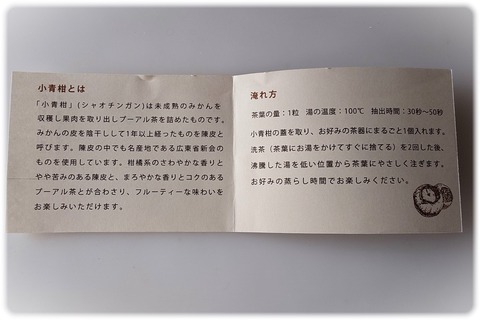 小青柑とは
「小青柑」(シャオチンガン)は未成熟のみかんを
収穫し果肉を取り出しプーアル茶を詰めたものです。
みかんの皮を陰干しして1年以上経ったものを陳皮と
呼びます。陳皮の中でも名産地である広東省新会の
ものを使用しています。柑橘系のさわやかな香りと
やや苦みのある陳皮と、まろやかな香りとコクのある
プーアル茶とが合わさり、フルーティーな味わいを
お楽しみいただけます。
淹れ方
茶葉の量:1粒 湯の温度:100℃ 抽出時間:30秒〜50秒
小青柑の蓋を取り、お好みの茶器にまるごと1個入れます。
洗茶(茶葉にお湯をかけてすぐに捨てる)を2回した後、
沸騰した湯を低い位置から茶葉にやさしく注ぎます。
お好みの蒸らし時間でお楽しみください。